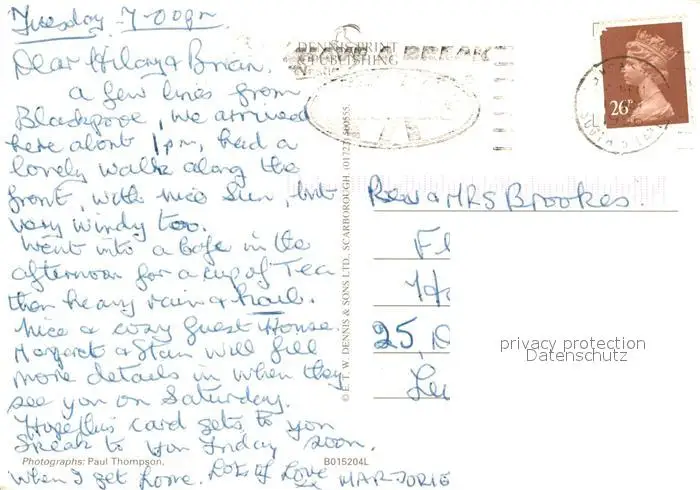 Tuesday 7-00pm
Dear Hilary & Brian,
a few lines from
Blackpool, we arrived
here about 1pm, had a
lovely walk along the
front, with nice sun, but
very windy too.
Went into a Cafe in the
afternoon for a cup of Tea
then heavy rain & hail.
Nice & cosy Guest House.
Margaret & Stan will fill
more details in when they
see you on Saturday.
Hope this card gets to you
Speak to you Friday soon.
when I get home. Lots of Love
MARJORIE
Photographs: Paul Thompson.
B015204L
DENNIS PRINT
& PUBLISHING
A BREAK
© E.T.W. DENNIS & SONS LTD. SCARBOROUGH (01723) 500555.
26P
Rev & MRS Brookes.
Fl
25, D
privacy protection
Datenschutz